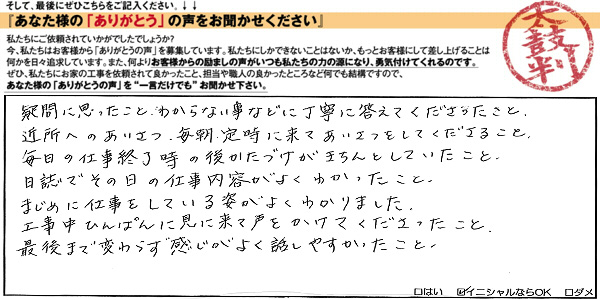 そして、最後にぜひこちらをご記入ください。↓↓
『あなた様の「ありがとう」の声をお聞かせください』
私たちにご依頼されていかがでしたでしょうか?
今、私たちはお客様から「ありがとうの声」を募集しています。私たちにしかできないことはないか、もっとお客様にして差し上げることは
何かを日々追求しています。また、何よりお客様からの励ましの声がいつも私たちの力の源になり、勇気付けてくれるのです。
ぜひ、私たちにお家の工事を依頼されて良かったこと、担当や職人の良かったところなど何でも結構ですので、
あなた様の「ありがとうの声」を“一言だけでも”お聞かせ下さい。
太鼓判
疑問に思ったこと、わからない事などに丁寧に答えてくださったこと。
近所へのあいさつ、毎朝、定時に来てあいさつをしてくださること。
毎日の仕事終了時の後かたづけがきちんとしていたこと。
日誌でその日の仕事内容がよくわかったこと。
まじめに仕事をしている姿がよくわかりました。
工事中ひんぱんに見に来て声をかけてくださったこと。
最後まで変わらず感じがよく話しやすかったこと。
□はい ☑イニシャルならOK □ダメ